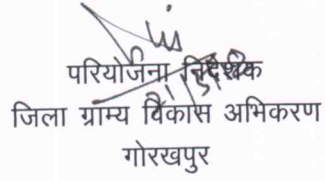 परियोजना निदेशक
जिला ग्राम्य विकास अभिकरण
गोरखपुर